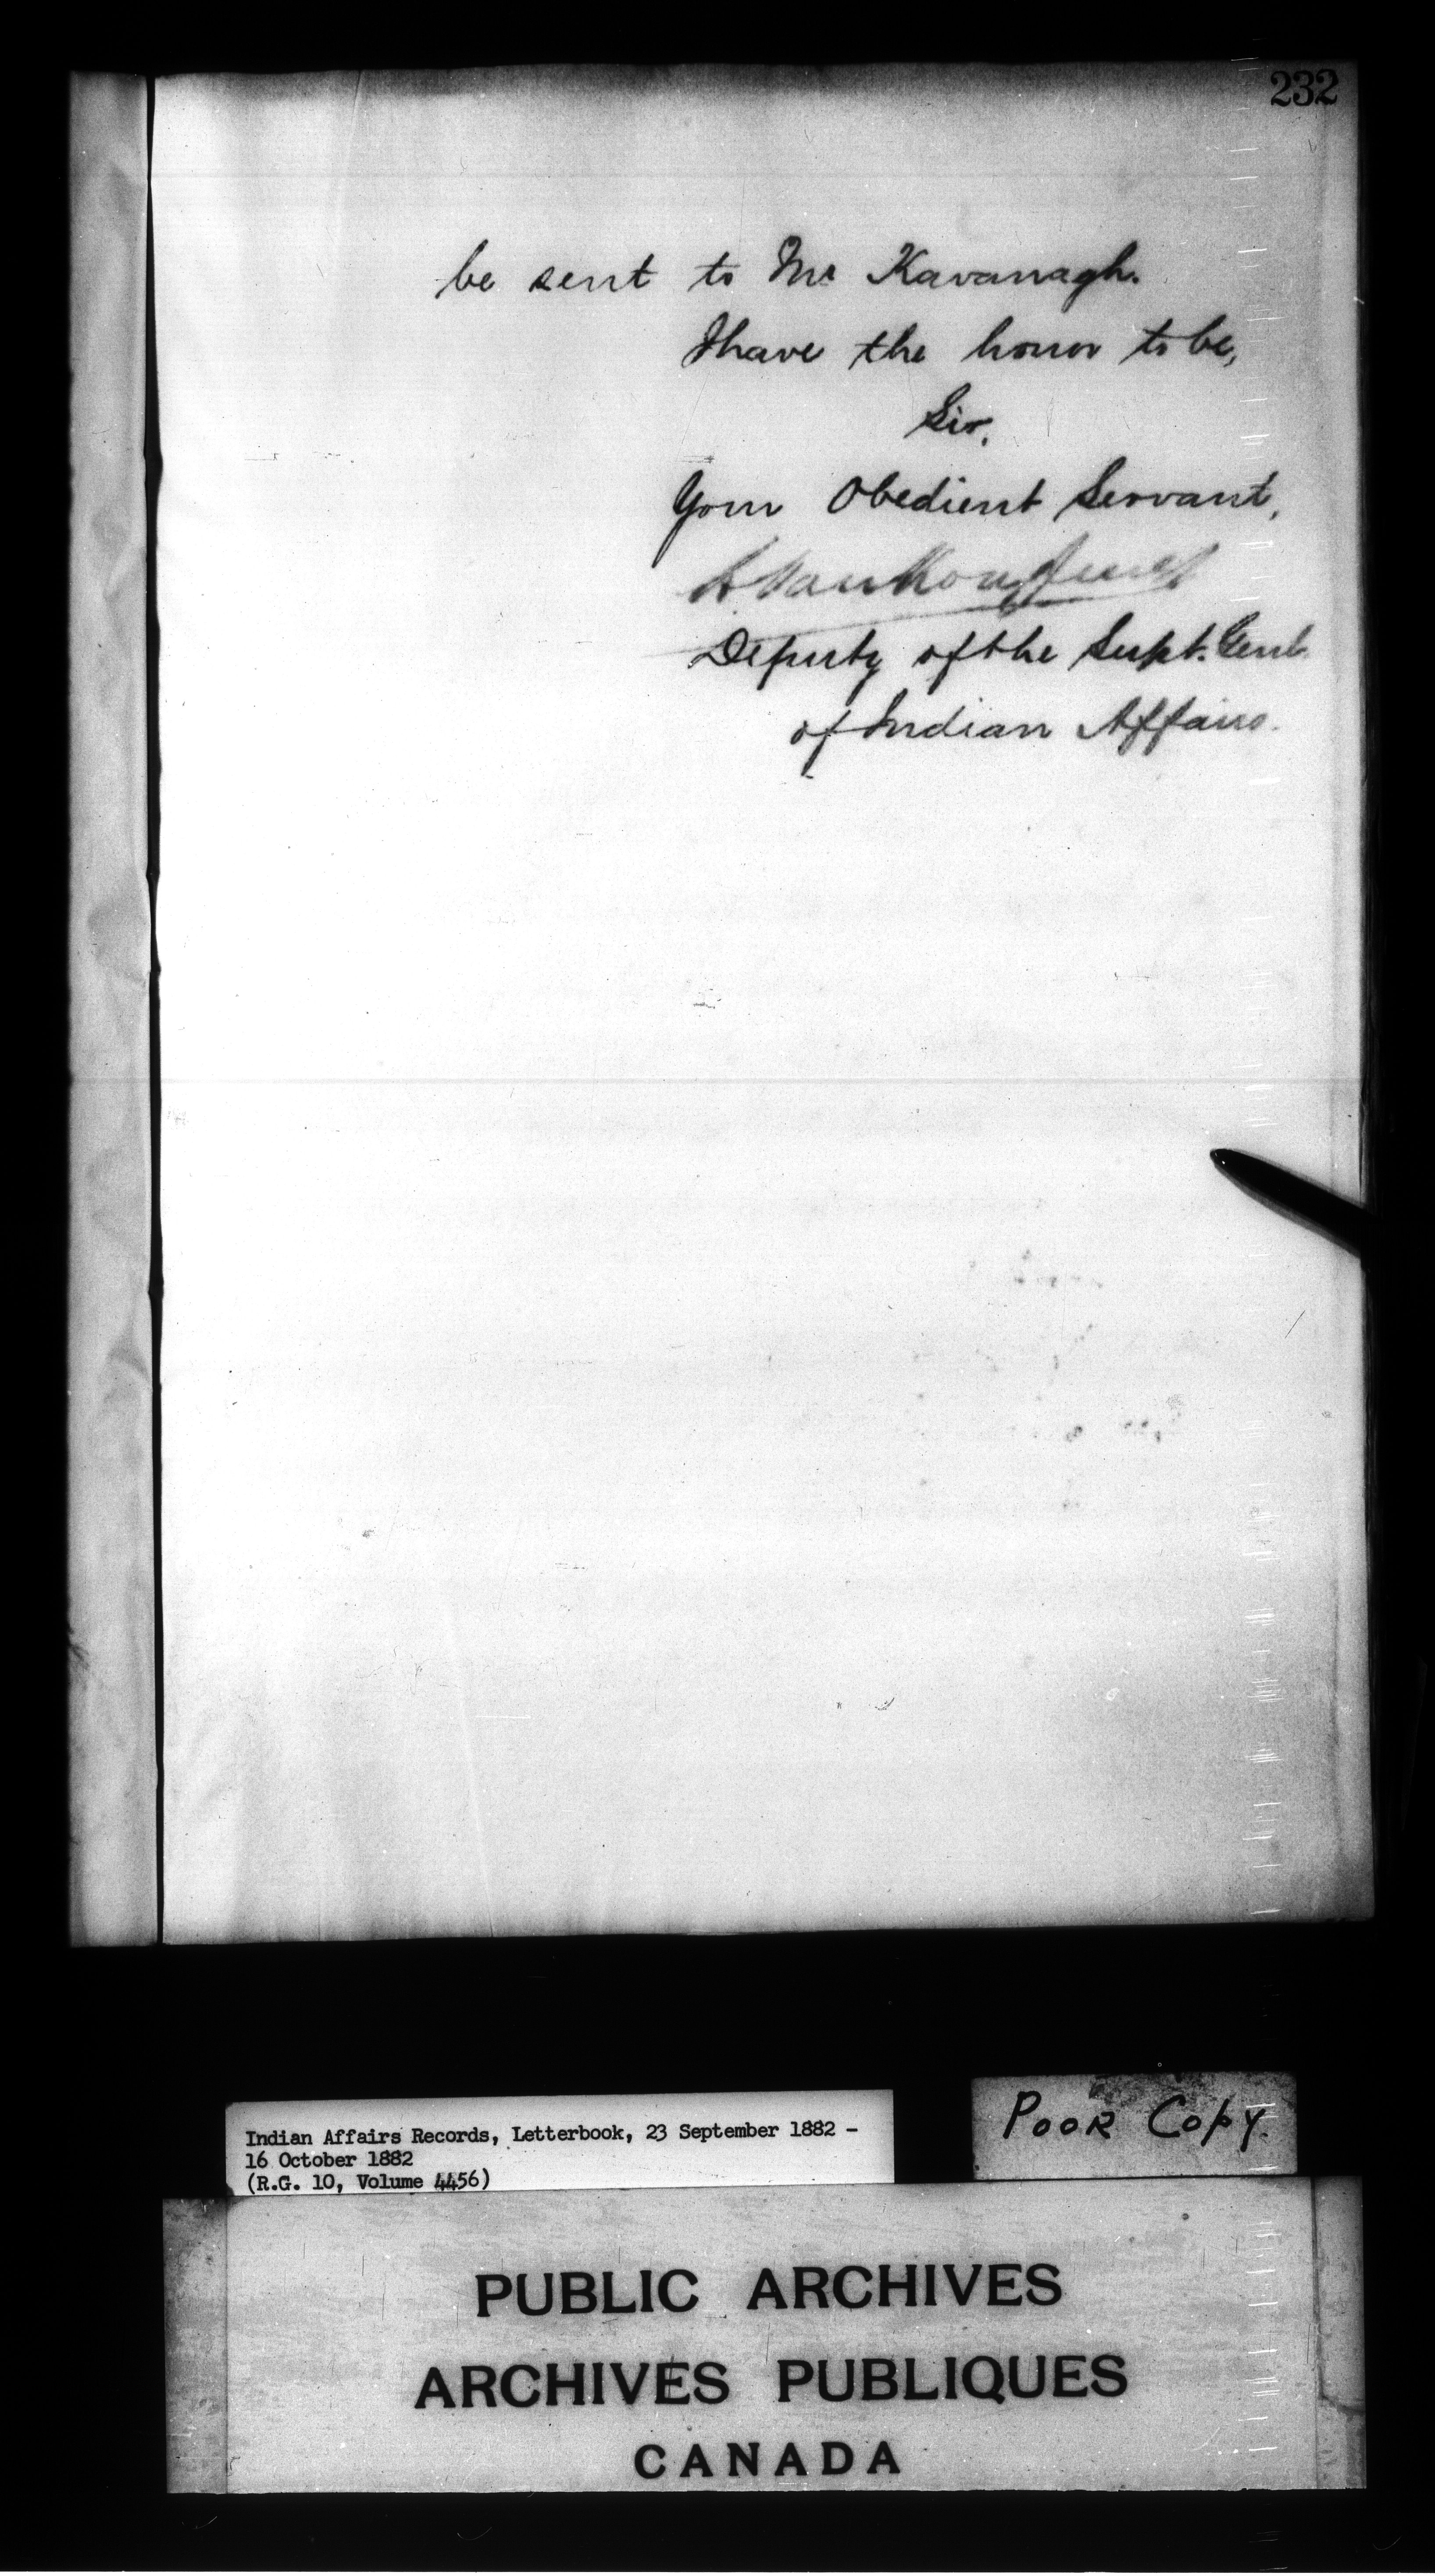 232
be sent to Mr Kavanagh.
I have the honor to be,
Sir,
Your Obedient Servant,
L Vankoughnet
Deputy of the Supt. Genl.
of Indian Affairs.
Indian Affairs Records, Letterbook, 23 September 1882 -
16 October 1882
(R.G. 10, Volume 4456)
POOR COPY.
PUBLIC ARCHIVES
ARCHIVES PUBLIQUES
CANADA